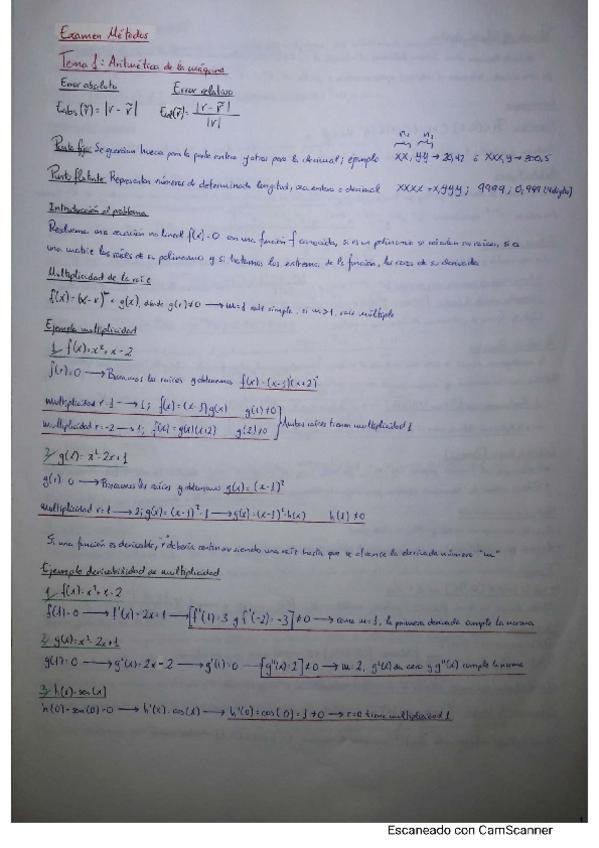 Examen Métodos
Tema 1: Aritmética de la máquina
Error absoluto Error relativo
Eabs(r̃) = |r - r̃| Erel(r̃) = |r - r̃| / |r|
n₁ n₂
Punto fijo: Se guardan huecos para la parte entera y otros para la decimal; ejemplo XX,YY → 20,47 ó XXX,Y → 300,5
Punto flotante: Representar números de determinada longitud, sea entero o decimal XXXX = X,YYY; 9999, 0,999 (4 dígitos)
Introducción al problema
Resolvemos una ecuación no lineal f(x)=0 con una función f conocida, si es un polinomio se calculan sus raíces, si es
una matriz las raíces de su polinomio y si buscamos los extremos de la función, las raíces de su derivada
Multiplicidad de la raíz
f(x) = (x-r)ᵐ · g(x), donde g(r) ≠ 0 → m=1 raíz simple, si m>1, raíz múltiple
Ejemplo multiplicidad
1. f(x) = x² + x - 2
f(r)=0 → Buscamos las raíces y obtenemos f(x) = (x-1)¹(x+2)¹
multiplicidad r=1 → 1; f(x) = (x-1)g(x) g(1) ≠ 0
multiplicidad r=-2 → 1; f(x) = g(x)(x+2) g(2) ≠ 0 Ambas raíces tienen multiplicidad 1
2. g(x) = x² - 2x + 1
g(r)=0 → Buscamos las raíces y obtenemos g(x) = (x-1)²
multiplicidad r=1 → 2; g(x) = (x-1)² · 1 → g(x) = (x-1)² · h(x) h(1) ≠ 0
Si una función es derivable, "r" debería continuar siendo una raíz hasta que se alcance la derivada número "m"
Ejemplo derivabilidad de multiplicidad
1. f(x) = x² + x - 2
f(1)=0 → f'(x) = 2x+1 → [f'(1)=3 y f'(-2)=-3] ≠ 0 → como m=1, la primera derivada cumple la norma
2. g(x) = x² - 2x + 1
g(1)=0 → g'(x) = 2x-2 → g'(1)=0 → [g''(x)=2] ≠ 0 → m=2, g'(x) da cero y g''(x) cumple la norma
3. h(x) = sen(x)
h(0) = sen(0) = 0 → h'(x) = cos(x) → h'(0) = cos(0) = 1 ≠ 0 → r=0 tiene multiplicidad 1
Escaneado con CamScanner